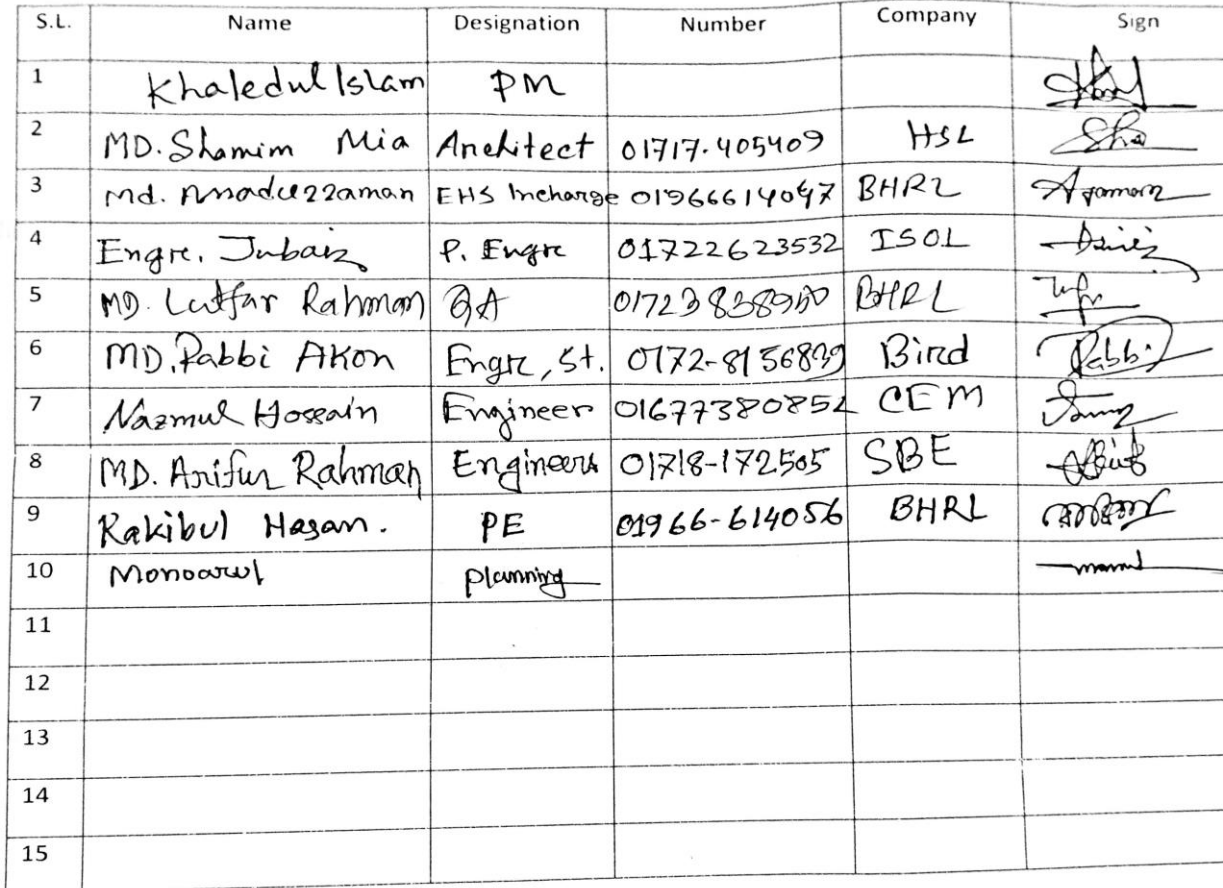 S.L. Name Designation Number Company Sign
1 Khaledul Islam PM
2 MD. Shamim Mia Architect 01717-405409 HSL
3 Md. Asaduzzaman EHS Incharge 01966614047 BHRL
4 Engr. Jubair P. Engr ISOL 01722623532
5 MD. Lutfar Rahman QA BHRL
6 MD. Rabbi Akon Engr, St. 0172-8156839 Bird Rabbi
7 Nazmul Hossain Engineer CEM
8 MD. Arifur Rahman Engineers 01718-172505 SBE
9 Rakibul Hasan. PE 01966-614056 BHRL
10 Monoarul Planning
11
12
13
14
15